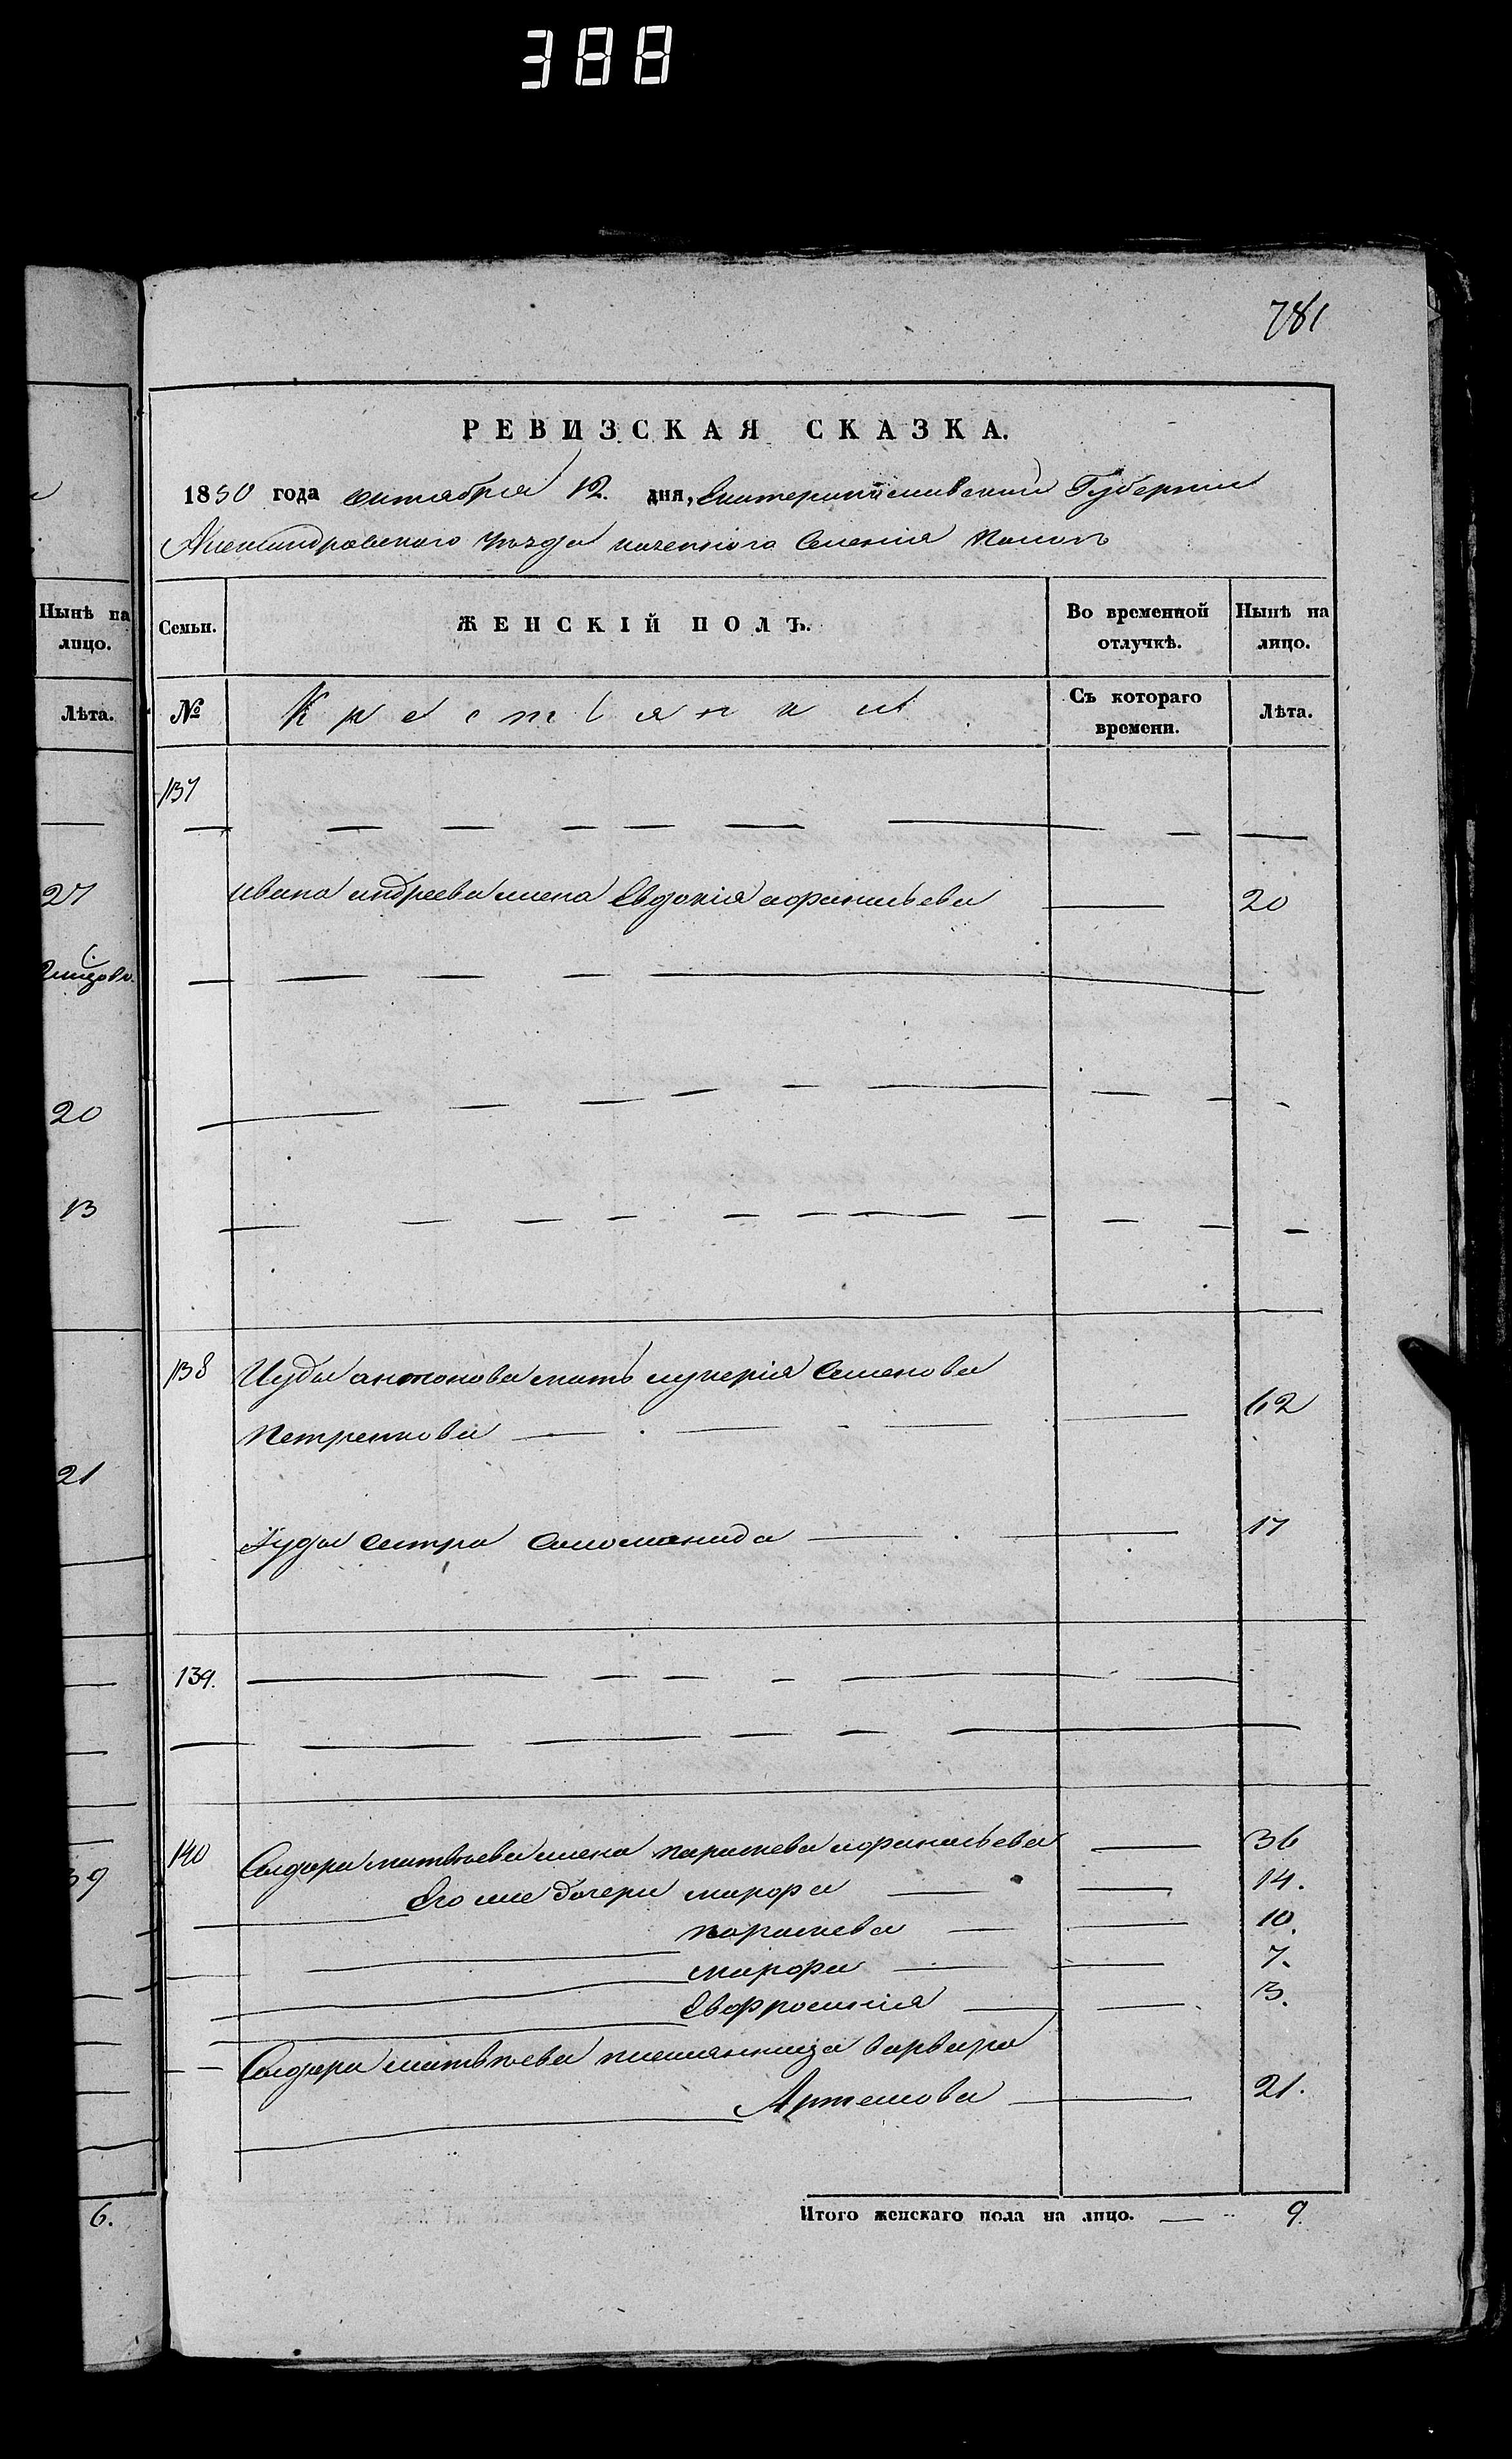 388
781
РЕВИЗСКАЯ СКАЗКА.
1850 года октября 12. дня, Екатеринославской Губернии
Александровского уезда казенного Селения
Нынѣ на лицо.
Семьи.
ЖЕНСКІЙ ПОЛЪ.
Во временной отлучкѣ.
Нынѣ на лицо.
Лѣта.
№
Крестьянки
Съ котораго времени.
Лѣта.
137
27
Ивана андреева жена Евдокия афанасьева 20
20
13
138 Иуды антонова мать лукерія Семенова
Петренкова 62
21
Іуды сестра Соломанида 17
139.
140 Сидора матвѣева жена парасковья афанасьева 36
Его же дочери марфа 14.
10.
марфа 7.
Евфросинія 3.
Сидора матвѣева племянница варвара
Артемова 21.
6.
Итого женскаго пола на лицо. 9